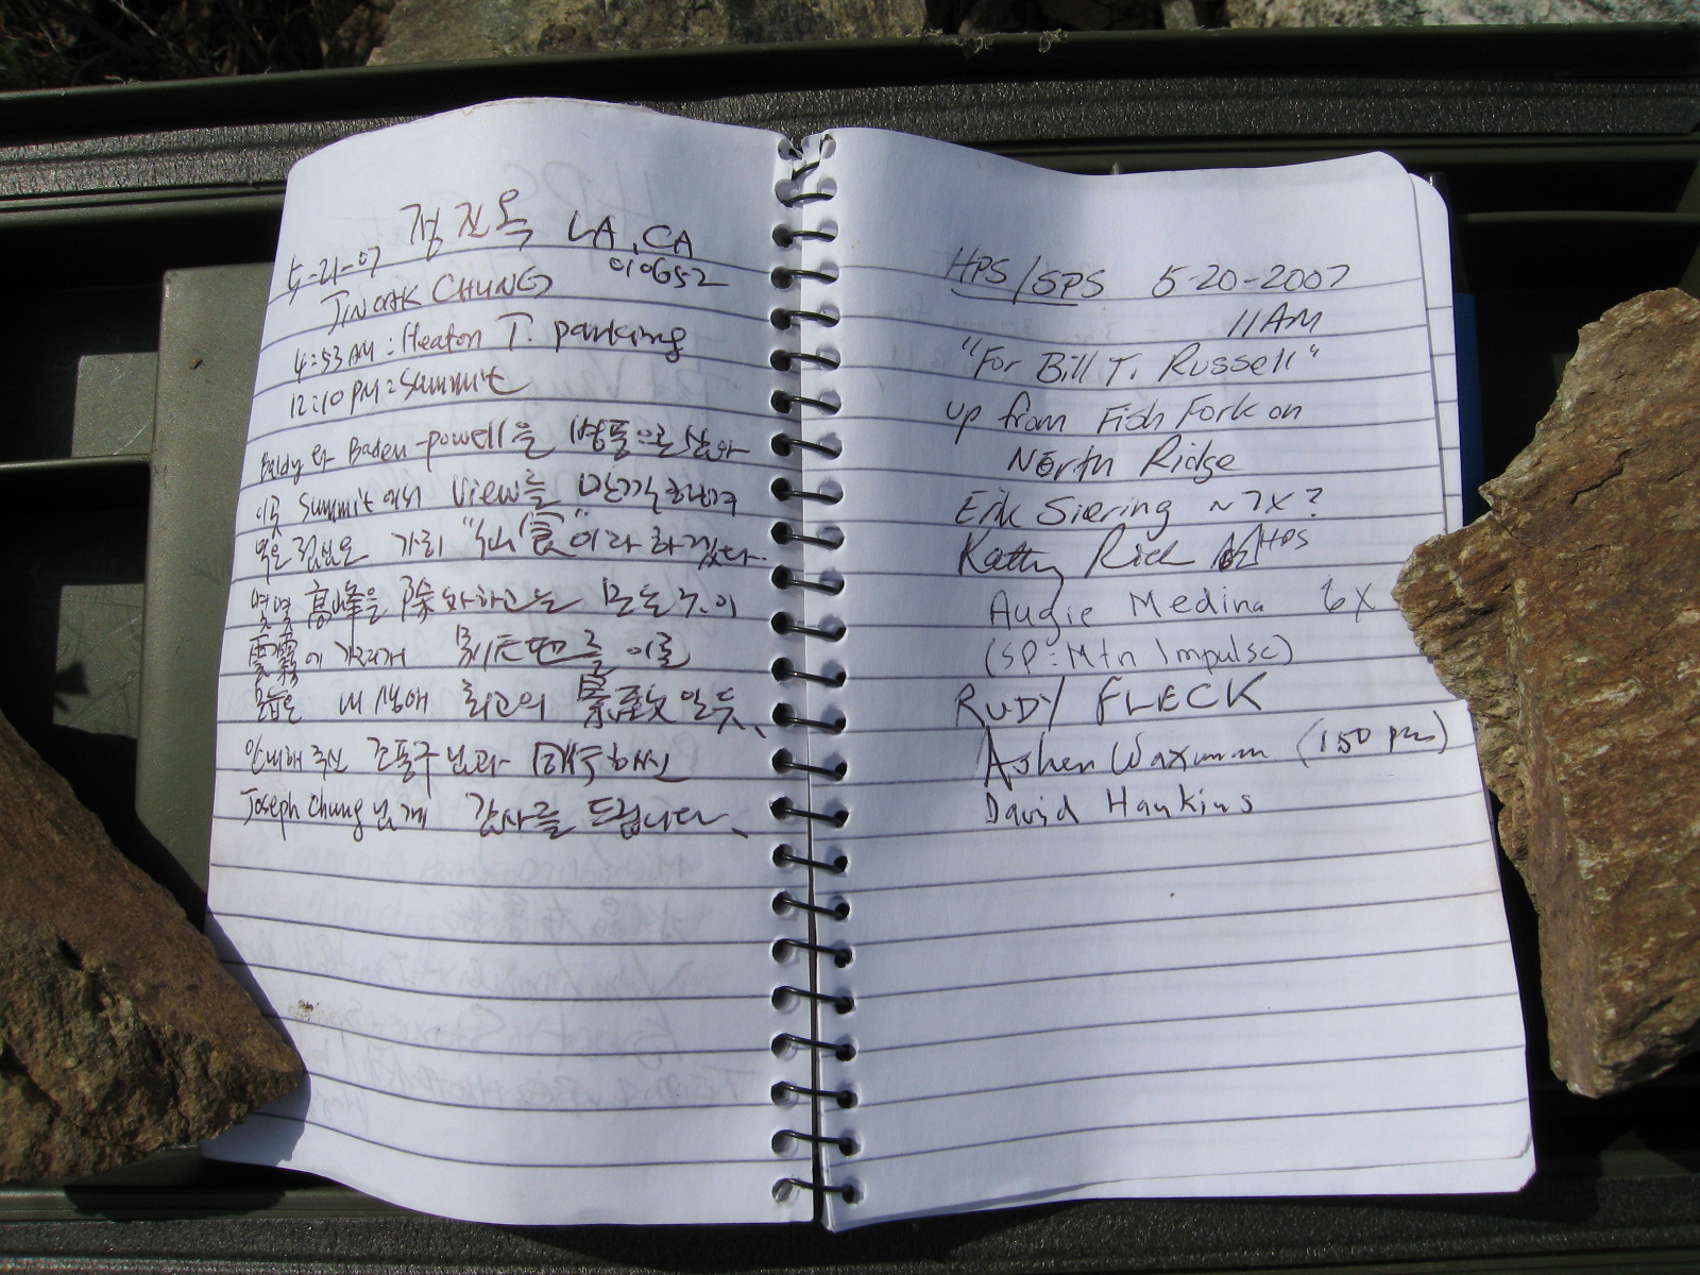 정진옥 LA, CA
5-21-07 010652
JINOAK CHUNG
4:53 AM : Heaton T. parking
12:10 PM : Summit
Baldy 와 Baden-powell을 병풍으로 삼아
이곳 Summit에서 View를 만끽하며
먹은 점심은 가히 "仙食"이라 하겠다.
몇몇 高峰을 除外하고는 모든 곳이
雲霧에 가리어 를 이룬
모습은 내 생애 최고의 景致인듯、
안내해 주신 조동구님과 해주신
Joseph Chung님께 감사를 드립니다、
HPS/SPS 5-20-2007
11AM
"For Bill T. Russell"
up from Fish Fork on
North Ridge
Erik Siering ~7X?
Kathy Rich HPS
Augie Medina 6X
(SP: Mtn Impulse)
RUDY FLECK
Asher Waxman (150 pks)
David Hankins